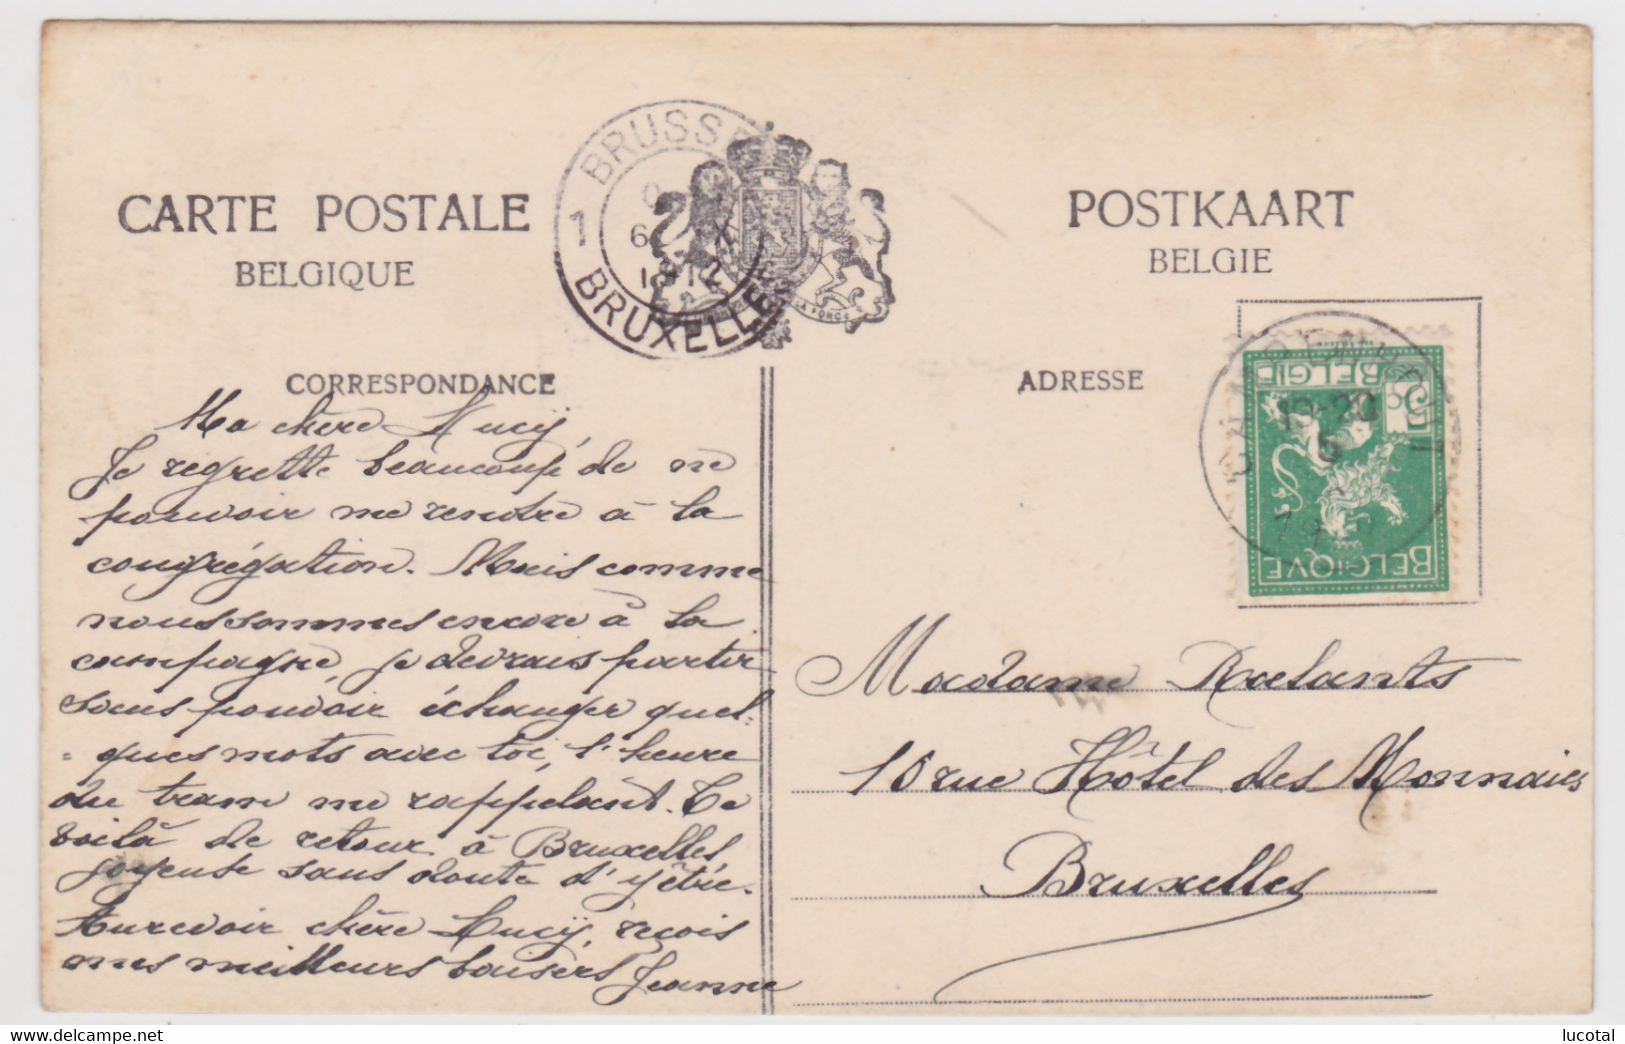 CARTE POSTALE
BELGIQUE
POSTKAART
BELGIE
1 BRUSSE
BRUXELLE
LA FORCE
CORRESPONDANCE
ADRESSE
Ma chère Lucÿ,
Je regrette beaucoup de ne
pouvoir me rendre à la
congrégation. Mais comme
nous sommes encore à la
campagne, je devrais partir
sans pouvoir échanger quel-
=ques mots avec toi, l'heure
du tram me rappelant. Te
voilà de retour à Bruxelles,
joyeuse sans doute d'y être.
Au revoir chère Lucÿ, reçois
mes meilleurs baisers Jeanne
BELGIE
5
BELGIQVE
Madame Raelants
16 rue Hôtel des Monnaies
Bruxelles
lucotal